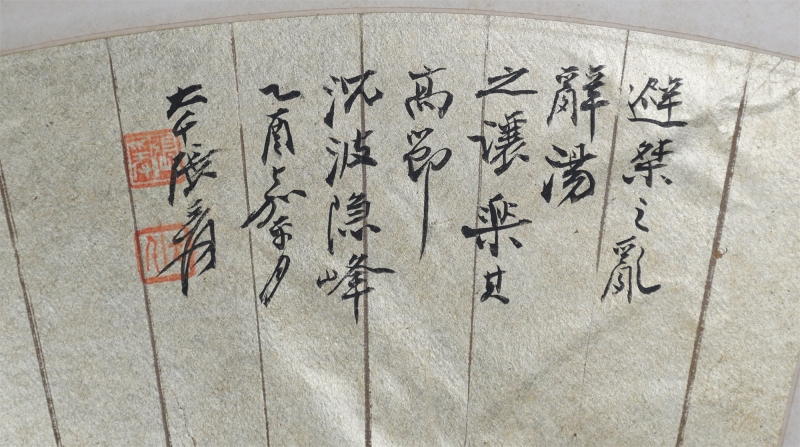 避桀之亂
辭湯
之讓樂其
高節
沉波隐峰
乙酉嘉平月
大千張爰